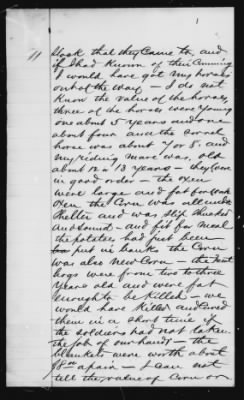 1
11
Stock that they Came to and
if I had Known of their Cumming
I would have got my horses
out of the way – I do not
Know the value of the horses,
three of the horses were young
one about 5 years and one
about four and the sorrel
horse was about 7 or 8. and
my riding mare was old
about 12 or 13 years – they were
in good order – the oxen
were large and fat for work
oxen the Corn was all under
Shelter and was slip shucked
and sound – and fit for meal
the potatoes had just been
put in bank the Corn
was also New Corn – the
hogs were from two to three
years old and were fat
enough to be Killed – we
would have Killed and cured
them in a short time if
the soldiers had not taken
the job off our hands – the
blankets were worth about
apair – I can not
tell the value of Corn or